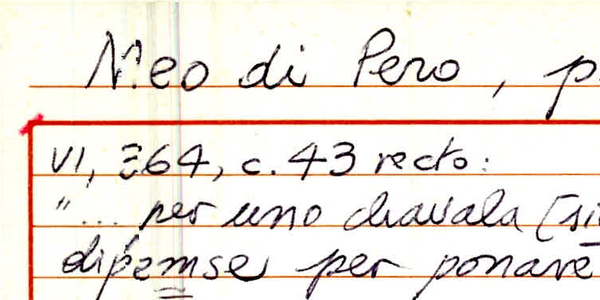 Meo di Pero, p
VI, 364, c. 43 recto:
"... per uno chavala [si
dipemse per ponare